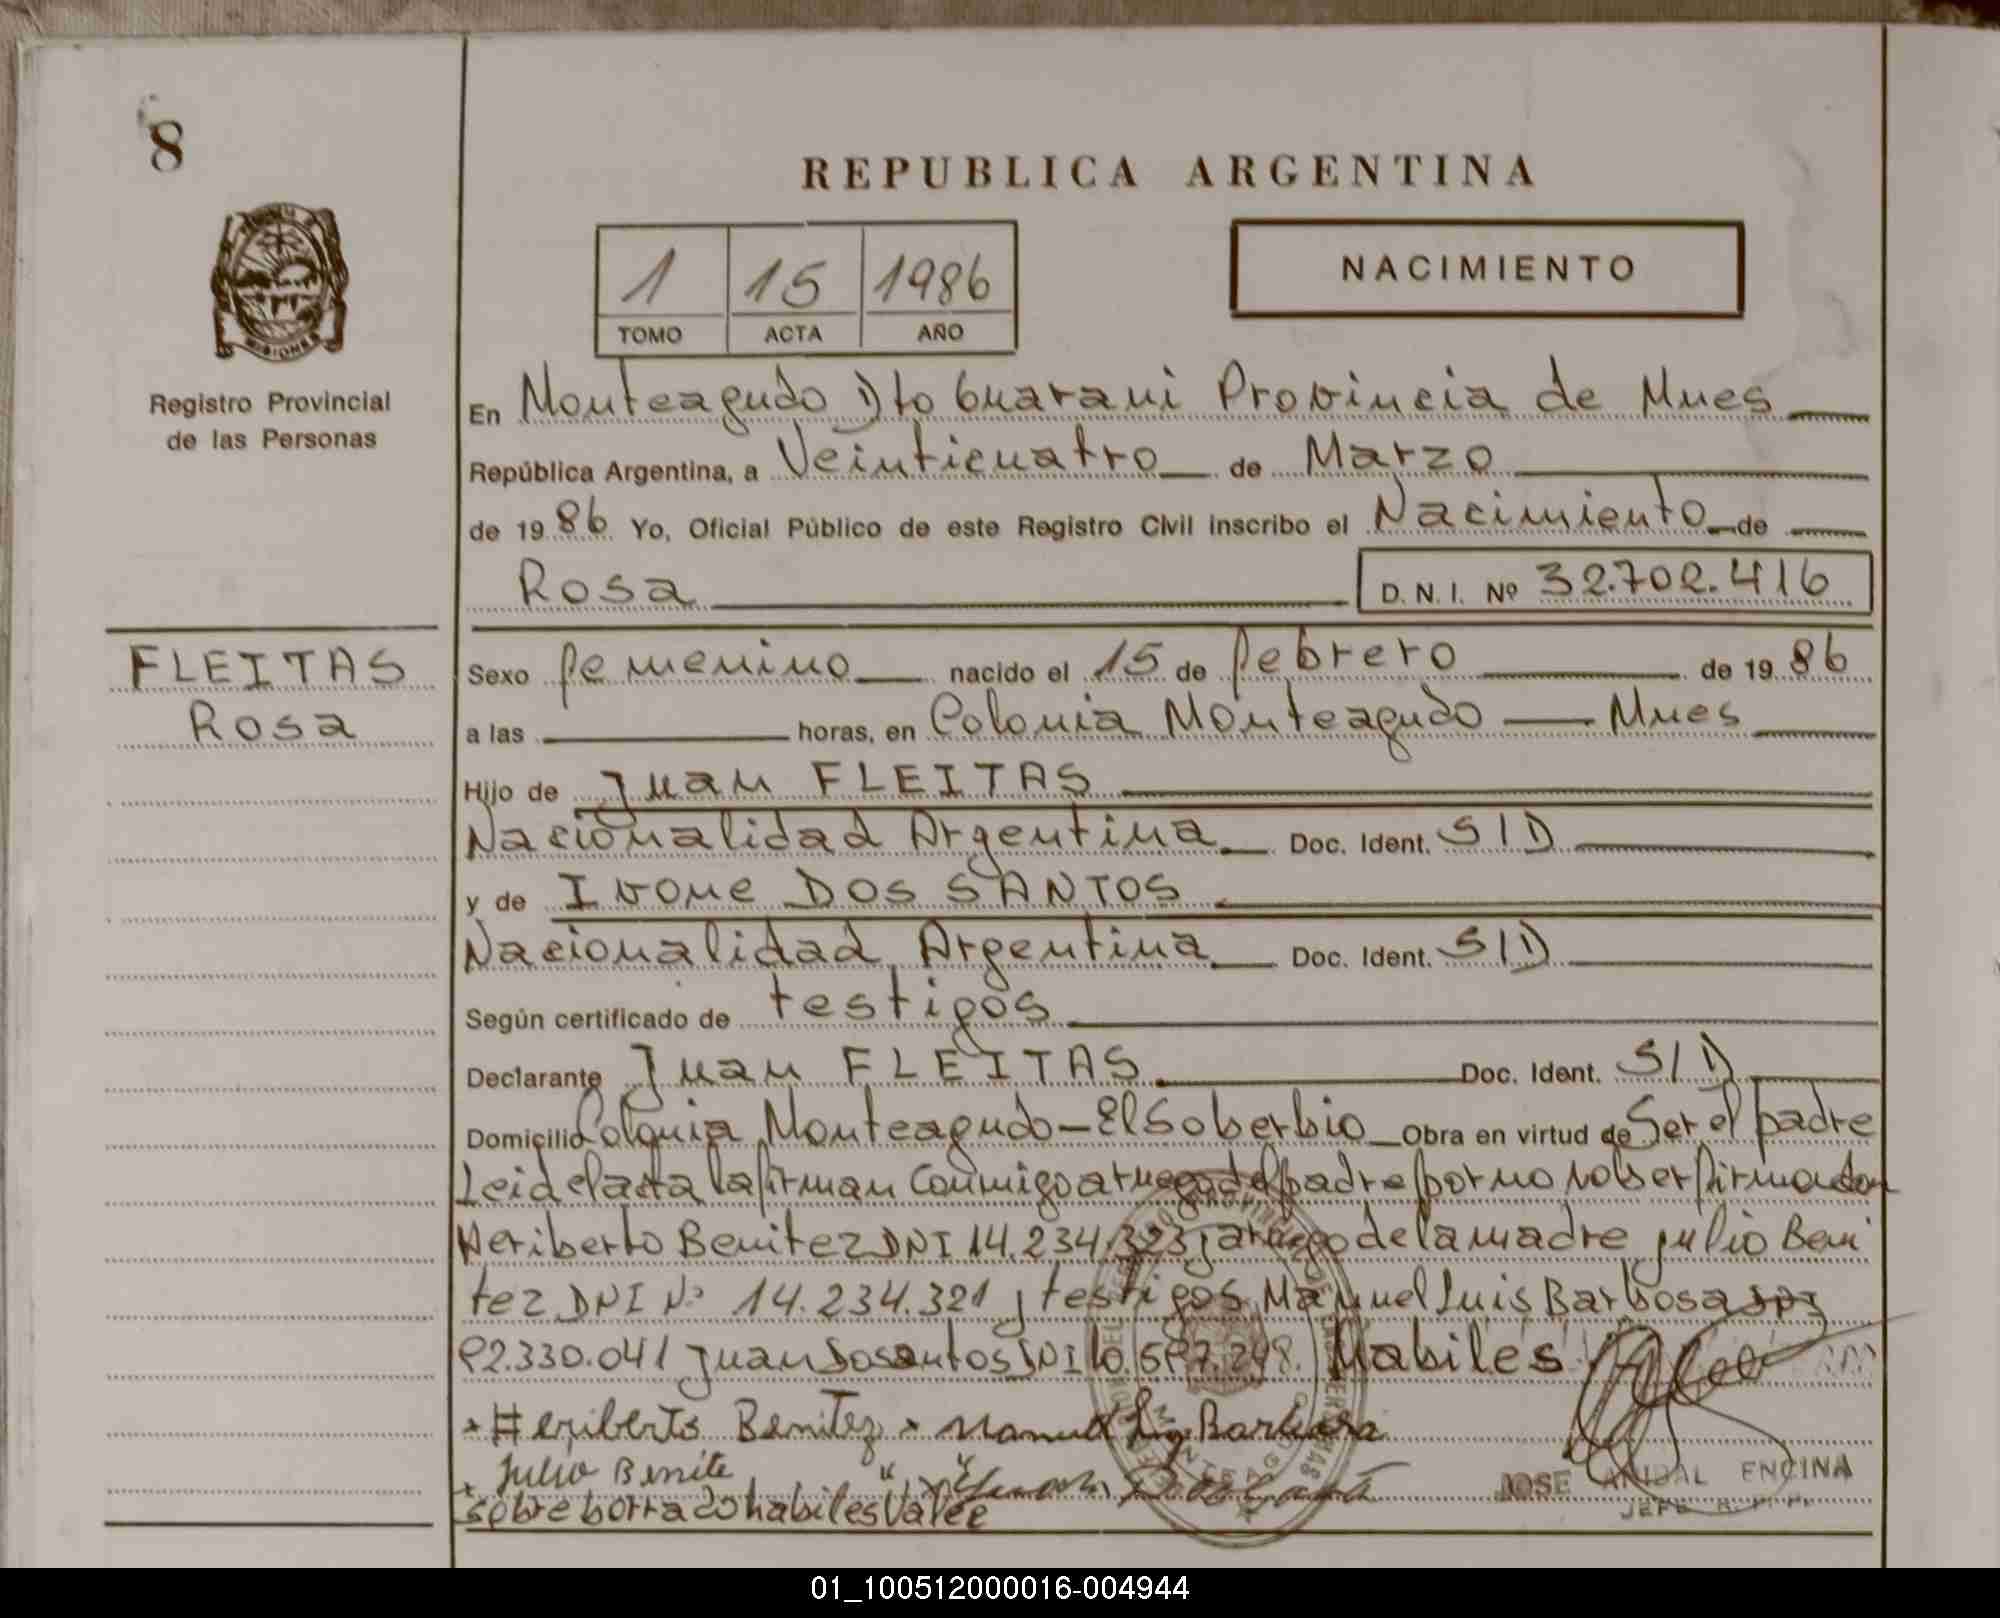 8
REPUBLICA ARGENTINA
MISIONES
Registro Provincial
de las Personas
1 15 1986
TOMO ACTA AÑO
NACIMIENTO
En Monteagudo Dto Guarani Provincia de Mnes
República Argentina, a Veinticuatro de Marzo
de 1986 Yo, Oficial Público de este Registro Civil inscribo el Nacimiento de
Rosa D. N. I. Nº 32.702.416
FLEITAS
Rosa
Sexo femenino nacido el 15 de febrero de 1986
a las horas, en Colonia Monteagudo — Mnes
Hijo de Juan FLEITAS
Nacionalidad Argentina Doc. Ident. S/D
y de Ivone DOS SANTOS
Nacionalidad Argentina Doc. Ident. S/D
Según certificado de testigos
Declarante Juan FLEITAS Doc. Ident. S/D
Domicilio Colonia Monteagudo - El Soberbio Obra en virtud de Ser el padre
Leida el acta la firman Conmigo a ruego del padre por no saber firmar don
Heriberto Benitez DNI 14.234.323 j a ruego de la madre julio Beni
tez DNI Nº 14.234.321 j testigos Manuel Luis Barbosa
juan Dosantos DNI Habiles
Heriberto Benitez Manuel L Barbosa
Julio Benite
sobre borrado habiles Vale
JOSE ANIBAL ENCINA
JEFE
01_100512000016-004944